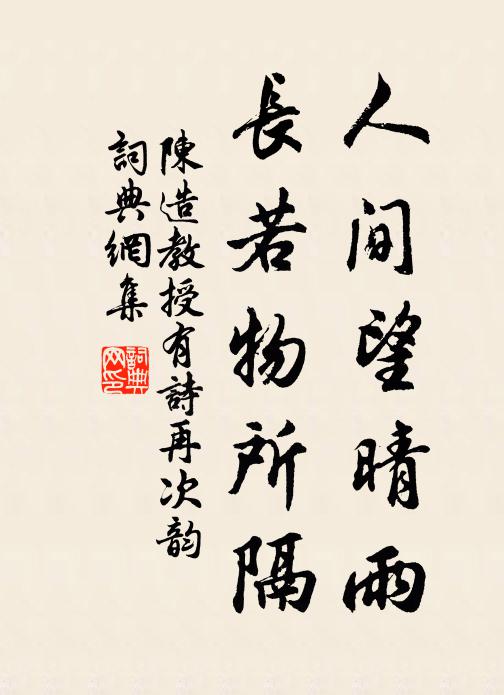 人間望晴雨
長若物所隔
陳造教授有詩再次韵
詞典網集
詞典网印